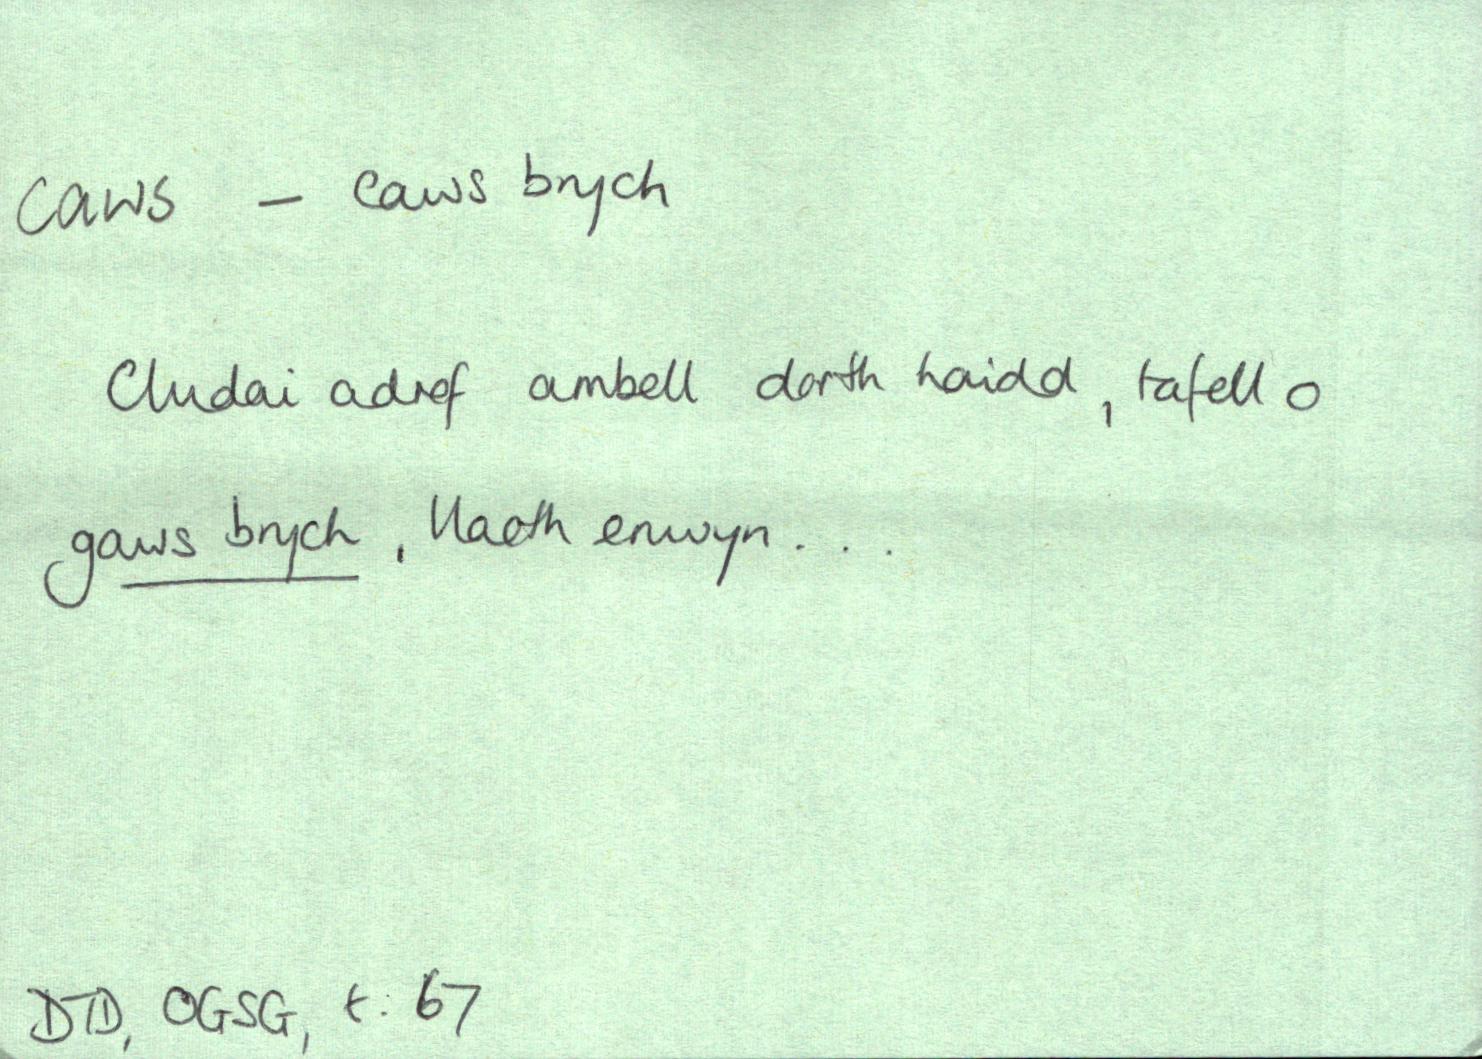 caws – caws brych
Cludai adref ambell dorth haidd, tafell o
gaws brych, llaeth enwyn...
DTD, OGSG, t. 67